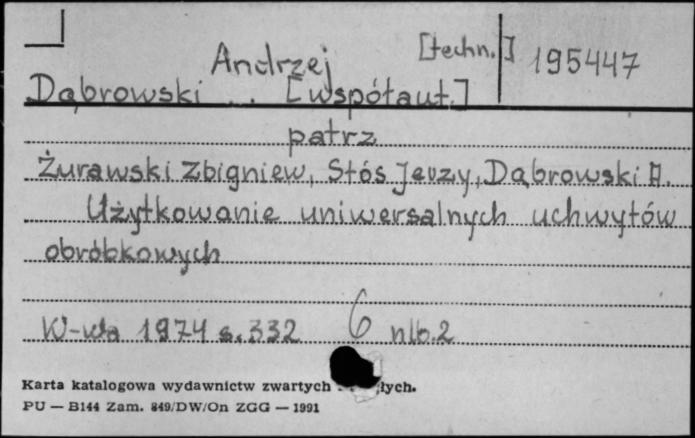 Andrzej [techn.] 195447
Dąbrowski .. [współaut.]
patrz
Żurawski Zbigniew, Stós Jerzy, Dąbrowski A.
Użytkowanie uniwersalnych uchwytów
obróbkowych
W-wa 1974 s. 332 6 nlb. 2
Karta katalogowa wydawnictw zwartych
PU — B144 Zam. 849/DW/On ZGG — 1991